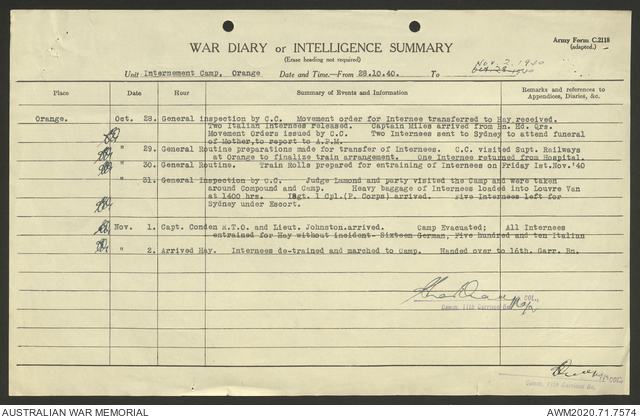 Army Form C.2118
(adapted.)
WAR DIARY or INTELLIGENCE SUMMARY
(Erase heading not required)
Nov. 2. 1940
Unit Internement Camp, Orange Date and Time—From 28.10.40. To
Place Date Hour Summary of Events and Information Remarks and references to
Appendices, Diaries, &c.
Orange. Oct. 28. General inspection by C.C. Movement order for Internee transferred to Hay received.
Two Italian Internees released. Captain Miles arrived from Bn. Hd. Qrs.
Movement Orders issued by C.C. Two Internees sent to Sydney to attend funeral
of Mother, to report to A.P.M.
" 29. General Routine preparations made for transfer of Internees. C.C. visited Supt. Railways
at Orange to finalize train arrangement. One Internee returned from Hospital.
" 30. General Routine. Train Rolls prepared for entraining of Internees on Friday 1st.Nov.'40
" 31. General Inspection by C.C. Judge Lamond and party visited the Camp and were taken
around Compound and Camp. Heavy baggage of Internees loaded into Louvre Van
at 1400 hrs. 1Sgt. 1 Cpl.(P. Corps) arrived. Five Internees left for
Sydney under Escort.
Nov. 1. Capt. Conden R.T.O. and Lieut. Johnston.arrived. Camp Evacuated; All Internees
entrained for Hay without incident- Sixteen German, Five hundred and ten Italian
" 2. Arrived Hay. Internees de-trained and marched to Camp. Handed over to 16th. Garr. Bn.
COL.,
Comm. 11th Garrison Bn.
Comm. 11th Garrison Bn.
AUSTRALIAN WAR MEMORIAL
AWM2020.71.7574